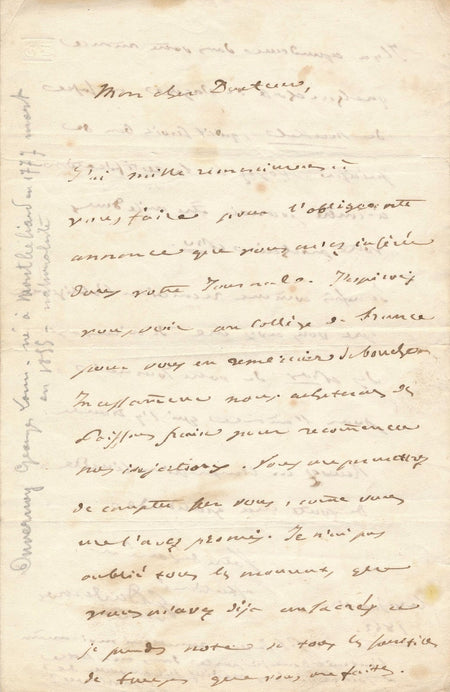 Mon cher Docteur,
J'ai mille remerciments à
vous faire pour l'obligeante
annonce que vous avez insérée
dans votre Journal. J'espérais
vous voir au Collège de France
pour vous en remercier de bouche.
Incessamment nous acheterons des
Poissons frais pour recommencer
nos injections. Vous me permettez
de compter sur vous, comme vous
me l'avez promis. Je n'ai pas
oublié tous les moments que
vous m'avez déjà consacrés et
je prends note de tous les sacrifices
de temps que vous me faites.
Duvernoy George Louis - né à Montbeliard en 1777 mort
en 1855 - naturaliste